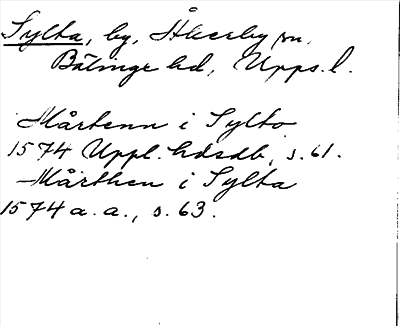 Sylta, by, Åkerby sn,
Bälinge hd, Upps. l.
Mårtenn i Sylto
1574 Uppl. hdsdb, s. 61.
Mårthen i Sylta
1574 a.a., s. 63.